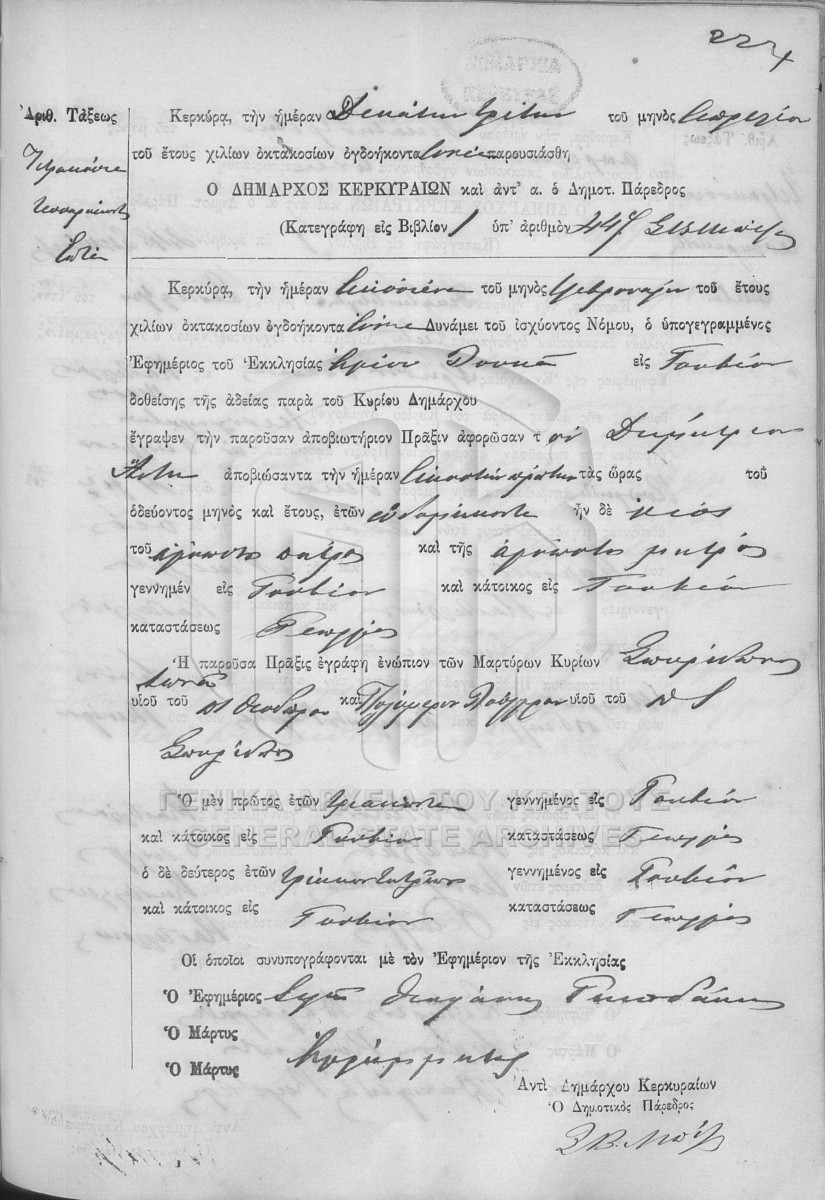 227
Ἀριθ. Τάξεως
Τετρακόσια
τεσσαράκοντα
ἑπτά
Κερκύρᾳ, τὴν ἡμέραν Δεκάτην τρίτην τοῦ μηνὸς Ἀπριλίου
τοῦ ἔτους χιλίων ὀκτακοσίων ὀγδοήκοντα παρουσιάσθη
Ο ΔΗΜΑΡΧΟΣ ΚΕΡΚΥΡΑΙΩΝ καὶ ἀντ' α. ὁ Δημοτ. Πάρεδρος
(Κατεγράφη εἰς Βιβλίον 1 ὑπ' ἀριθμὸν 447
Κερκύρᾳ, τὴν ἡμέραν τοῦ μηνὸς Φεβρουαρίου τοῦ ἔτους
χιλίων ὀκτακοσίων ὀγδοήκοντα Δυνάμει τοῦ ἰσχύοντος Νόμου, ὁ ὑπογεγραμμένος
Ἐφημέριος τοῦ Ἐκκλησίας Ἁγίου Λουκᾶ εἰς Γουβίον
δοθείσης τῆς ἀδείας παρὰ τοῦ Κυρίου Δημάρχου
ἔγραψεν τὴν παροῦσαν ἀποβιωτήριον Πρᾶξιν ἀφορῶσαν τ όν Δημήτριον
ἀποβιώσαντα τὴν ἡμέραν εἰκοστὴν πρώτην τὰς ὥρας τοῦ
ὁδεύοντος μηνὸς καὶ ἔτους, ἐτῶν ἑβδομήκοντα ἦν δὲ υἱός
τοῦ ἀγνώστου πατρός καὶ τῆς ἀγνώστου μητρός
γεννημέν εἰς Γουβίον καὶ κάτοικος εἰς Γουβίον
καταστάσεως Γεωργός
Ἡ παροῦσα Πρᾶξις ἐγράφη ἐνώπιον τῶν Μαρτύρων Κυρίων Σπυρίδωνος
υἱοῦ τοῦ Θεοδώρου καὶ υἱοῦ τοῦ
Σπυρίδωνος
Ὁ μὲν πρῶτος ἐτῶν τριάκοντα γεννημένος εἰς Γουβίον
καὶ κάτοικος εἰς Γουβίον καταστάσεως Γεωργός
ὁ δὲ δεύτερος ἐτῶν γεννημένος εἰς Γουβίον
καὶ κάτοικος εἰς Γουβίον καταστάσεως Γεωργός
Οἱ ὁποῖοι συνυπογράφονται μὲ τὸν Ἐφημέριον τῆς Ἐκκλησίας
Ὁ Ἐφημέριος
Ὁ Μάρτυς
Ὁ Μάρτυς Ἀγράμματος
Ἀντὶ Δημάρχου Κερκυραίων
Ὁ Δημοτικὸς Πάρεδρος
ΓΕΝΙΚΑ ΑΡΧΕΙΑ ΤΟΥ ΚΡΑΤΟΥΣ
GENERAL STATE ARCHIVES